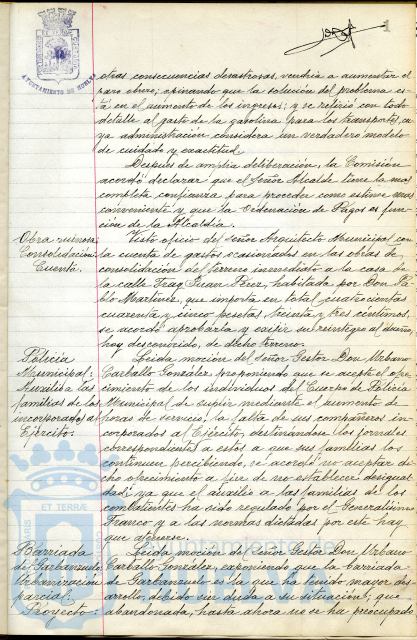 1
AYUNTAMIENTO DE HUELVA
otras consecuencias desastrosas, vendría a aumentar el
paro obrero; opinando que la solución del problema es-
tá en el aumento de los ingresos; y se refirió con todo
detalle al gasto de la gasolina para los transportes, cu-
ya administración considera un verdadero modelo
de cuidado y exactitud.
Después de amplia deliberación, la Comisión
acordó declarar que el Señor Alcalde tiene la mas
completa confianza para proceder como estime mas
conveniente y que la Ordenación de Pagos es fun-
ción de la Alcaldía.
Obra ruinosa:
Consolidación:
Cuenta.
Visto oficio del Señor Arquitecto Municipal con
la cuenta de gastos ocasionados en las obras de
consolidación del terreno inmediato a la casa de
la calle Fray Juan Pérez, habitada por Don Pa-
blo Martínez, que importa en total cuatrocientas
cuarenta y cinco pesetas, treinta y tres céntimos,
se acordó aprobarla y exigir su reintegro al dueño,
hoy desconocido, de dicho terreno.
Policía
Municipal:
Auxilio a las
familias de los
incorporados al
Ejército.
Leida moción del Señor Gestor Don Urbano
Carballo González, proponiendo que se acepte el ofre-
cimiento de los individuos del Cuerpo de Policía
Municipal de suplir mediante el aumento de
horas de servicio, la falta de sus compañeros in-
corporados al Ejército, destinándose los jornales
correspondientes a estos a que sus familias los
continuen percibiendo, se acordó no aceptar di-
cho ofrecimiento a fin de no establecer desigual-
dad, ya que el auxilio a las familias de los
combatientes ha sido regulado por el Generalísimo
Franco y a las normas dictadas por este hay
que atenerse.
Barriada
de Garbanzuelo:
Urbanización
parcial:
Proyecto:
Leida moción del Señor Gestor Don Urbano
Carballo González, exponiendo que la barriada
de Garbanzuelo es la que ha tenido mayor des-
arrollo, debido sin duda a su situación; que,
abandonada, hasta ahora no se ha preocupado
ET TERRÆ
Ayuntamiento de